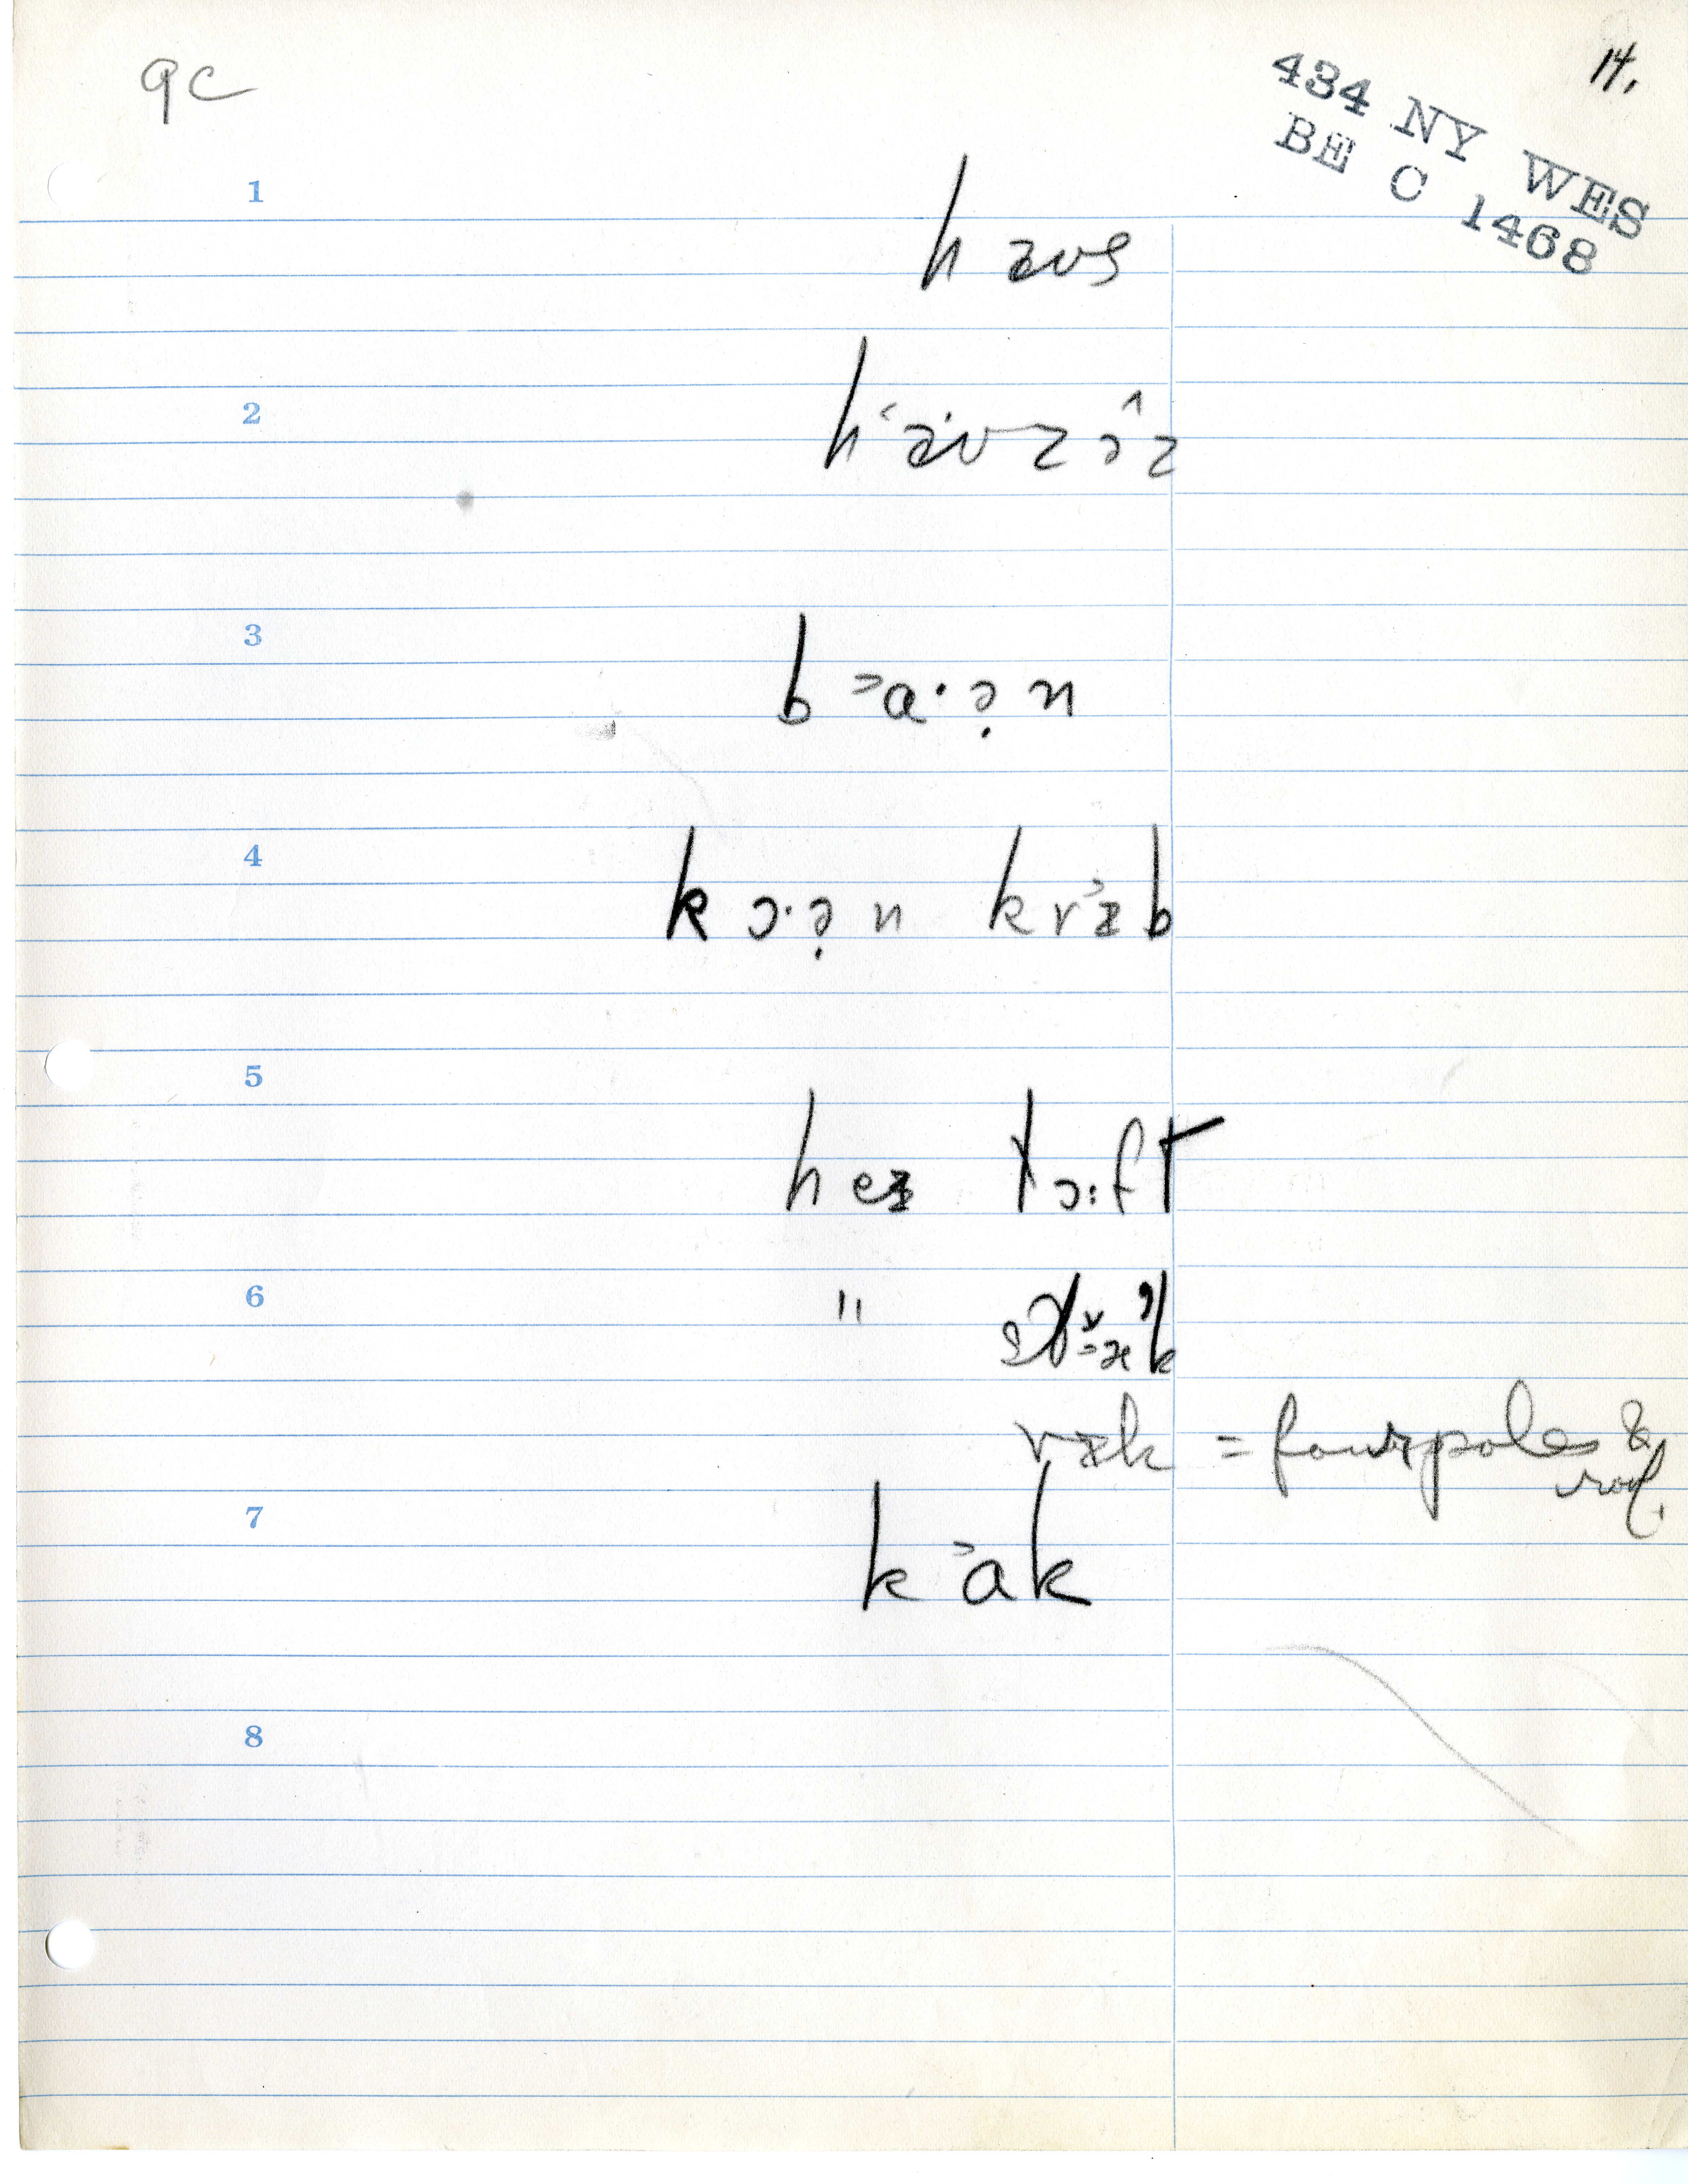 9c
14.
434 NY WES
BE C 1468
1
h aʊs
2
3
b ˃a· ə̣ n
4
k ɔ· ə̣ n k r ˃ɪ b
5
h eɪ t ɔ: f t
6
"
= four poles & roof.
7
k ˃a k
8